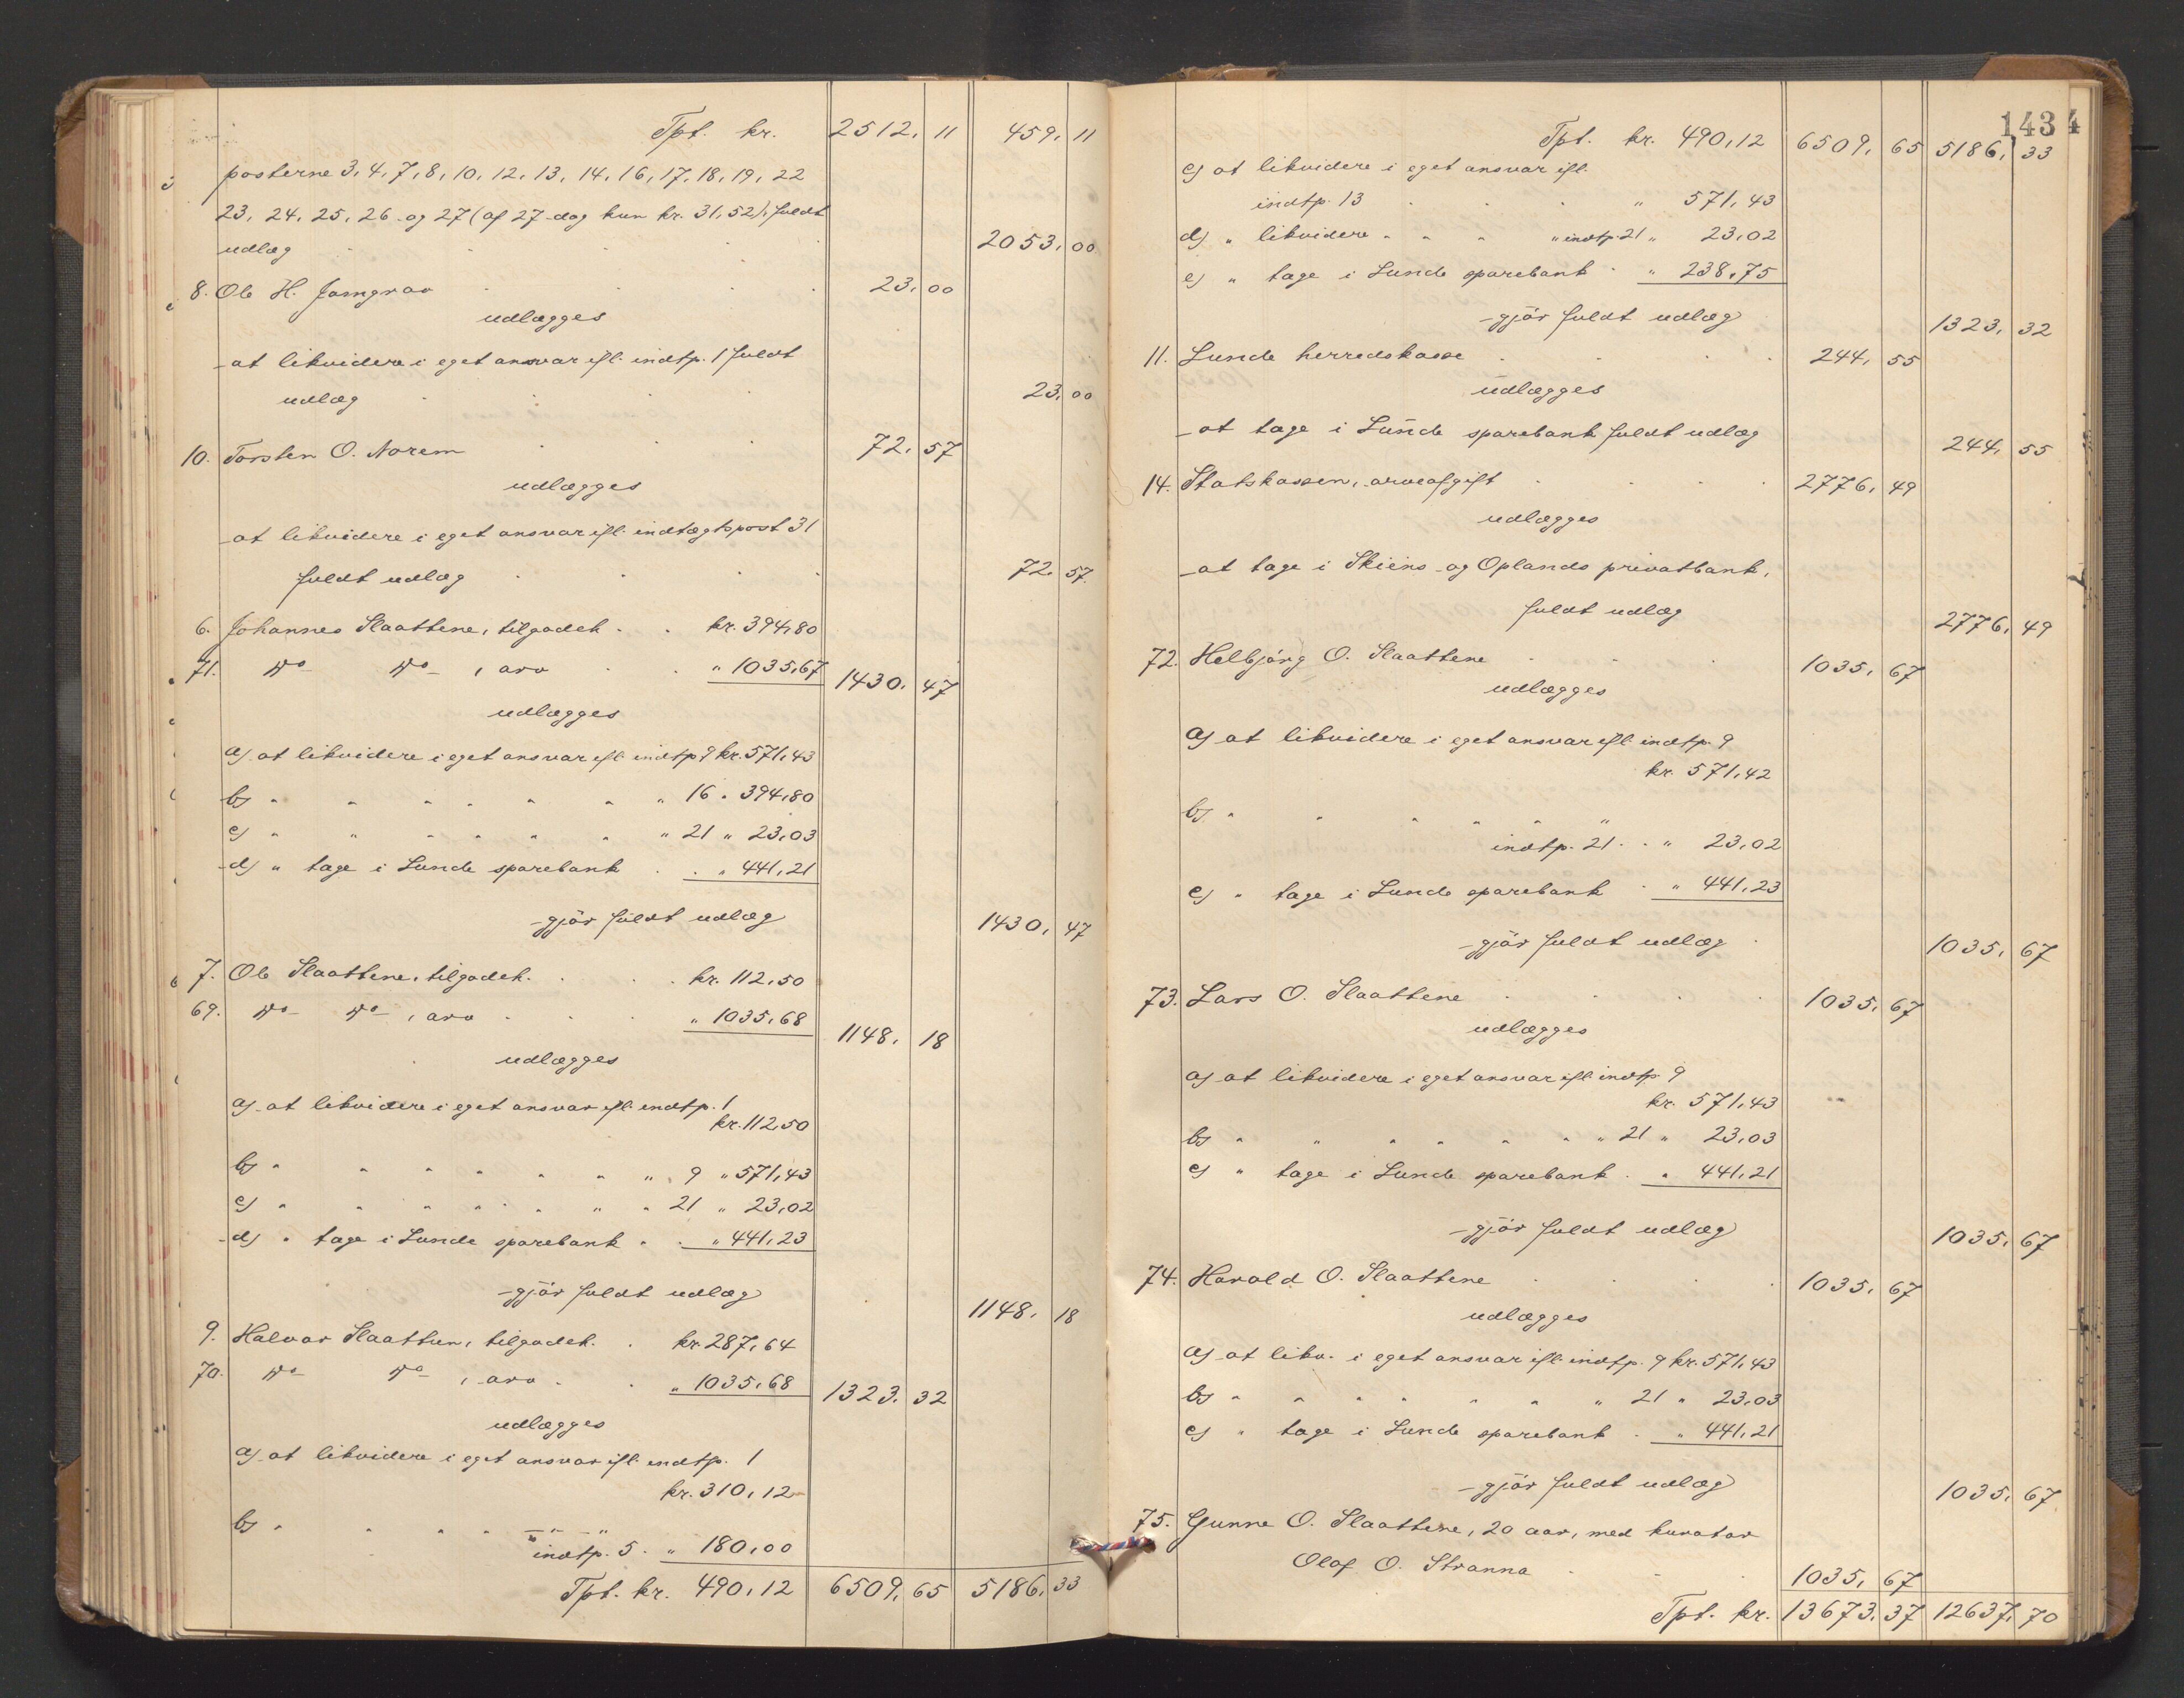 Tpt. kr. 2512, 11 459, 11
posterne 3, 4, 7, 8, 10, 12, 13, 14, 16, 17, 18, 19, 22
23, 24, 25, 26 og 27 (af 27 dog kun kr. 31,52), fuldt
udlæg 2053, 00
8. Ole H. Jamgrav 23, 00
udlægges
at likvidere i eget ansvar ifl. indtp. 1 fuldt
udlæg 23, 00
10. Torsten O. Norem 72, 57
udlægges
at likvidere i eget ansvar ifl. indtægtspost 31
fuldt udlæg 72, 57
6. Johannes Slaattene, tilgodeh. kr. 394,80
71. Do Do, arv " 1035,67 1430, 47
udlægges
a) at likvidere i eget ansvar ifl. indtp 9 kr. 571,43
b) " " " " " " " 16 " 394,80
c) " " " " " " " 21 " 23,03
d) " tage i Lunde sparebank " 441,21
gjör fuldt udlæg 1430, 47
7. Ole Slaattene, tilgodeh. kr. 112,50
69. Do Do, arv " 1035,68 1148, 18
udlægges
a) at likvidere i eget ansvar ifl. indtp. 1
kr. 112,50
b) " " " " " " " 9 " 571,43
c) " " " " " " " 21 " 23,02
d) " tage i Lunde sparebank " 441,23
gjör fuldt udlæg 1148, 18
9. Halvor Slaattun, tilgodeh. kr. 287,64
70. Do Do, arv " 1035,68 1323, 32
udlægges
a) at likvidere i eget ansvar ifl. indtp. 1
kr. 310,12
b) " " " " " "
indtp. 5 " 180,00
Tpt. kr. 490,12 6509, 65 5186, 33
143
4
Tpt. kr. 490,12 6509, 65 5186, 33
c) at likvidere i eget ansvar ifl.
indtp. 13 " 571,43
d) " likvidere " " " " indtp. 21 " 23,02
e) " tage i Lunde sparebank " 238,75
gjör fuldt udlæg 1323, 32
11. Lunde herredskasse 244, 55
udlægges
at tage i Lunde sparebank fuldt udlæg 244, 55
14. Statskassen, arveafgift 2776, 49
udlægges
at tage i Skiens og Oplands privatbank,
fuldt udlæg 2776, 49
72. Helbjörg O. Slaattene 1035, 67
udlægges
a) at likvidere i eget ansvar ifl. indtp. 9
kr. 571,42
b) " " " " " "
indtp. 21 " 23,02
c) " tage i Lunde sparebank " 441,23
gjör fuldt udlæg 1035, 67
73. Lars O. Slaattene 1035, 67
udlægges
a) at likvidere i eget ansvar ifl. indtp. 9
kr. 571,43
b) " " " " " " " 21 " 23,03
c) " tage i Lunde sparebank " 441,21
gjör fuldt udlæg 1035, 67
74. Harald O. Slaattene 1035, 67
udlægges
a) at likv. i eget ansvar ifl. indtp. 9 kr. 571,43
b) " " " " " " " 21 " 23,03
c) " tage i Lunde sparebank " 441,21
gjör fuldt udlæg 1035, 67
75. Gunne O. Slaattene, 20 aar, med kurator
Olaf O. Stranna 1035, 67
Tpt. kr. 13673, 37 12637, 70